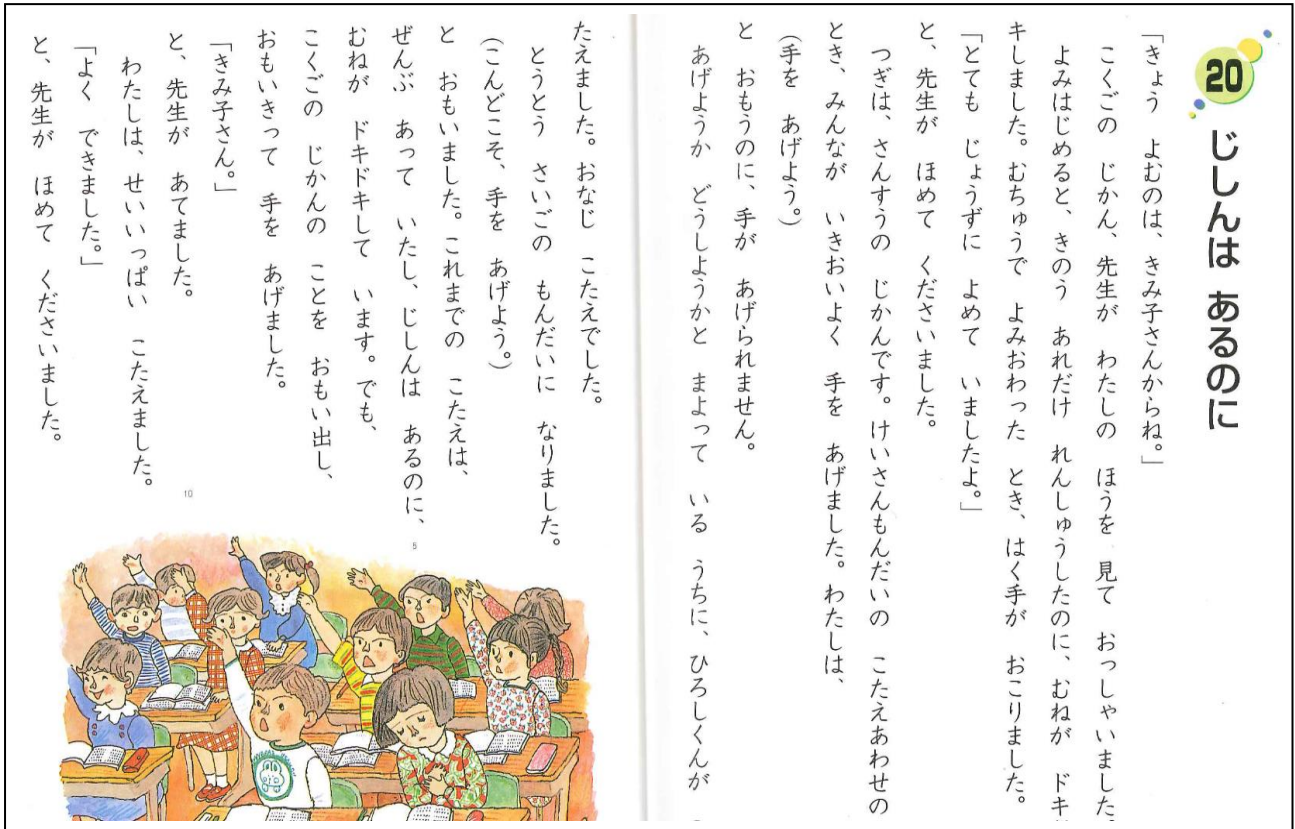 20
じしんは あるのに
「きょう よむのは、きみ子さんからね。」
こくごの じかん、先生が わたしの ほうを 見て おっしゃいました。
よみはじめると、きのう あれだけ れんしゅうしたのに、むねが ドキ
キしました。むちゅうで よみおわった とき、はく手が おこりました。
「とても じょうずに よめて いましたよ。」
と、先生が ほめて くださいました。
つぎは、さんすうの じかんです。けいさんもんだいの こたえあわせの
とき、みんなが いきおいよく 手を あげました。わたしは、
(手を あげよう。)
と おもうのに、手が あげられません。
あげようか どうしようかと まよって いる うちに、ひろしくんが
たえました。おなじ こたえでした。
とうとう さいごの もんだいに なりました。
(こんどこそ、手を あげよう。)
と おもいました。これまでの こたえは、
ぜんぶ あって いたし、じしんは あるのに、
5
むねが ドキドキして います。でも、
こくごの じかんの ことを おもい出し、
おもいきって 手を あげました。
「きみ子さん。」
と、先生が あてました。
10
わたしは、せいいっぱい こたえました。
「よく できました。」
と、先生が ほめて くださいました。